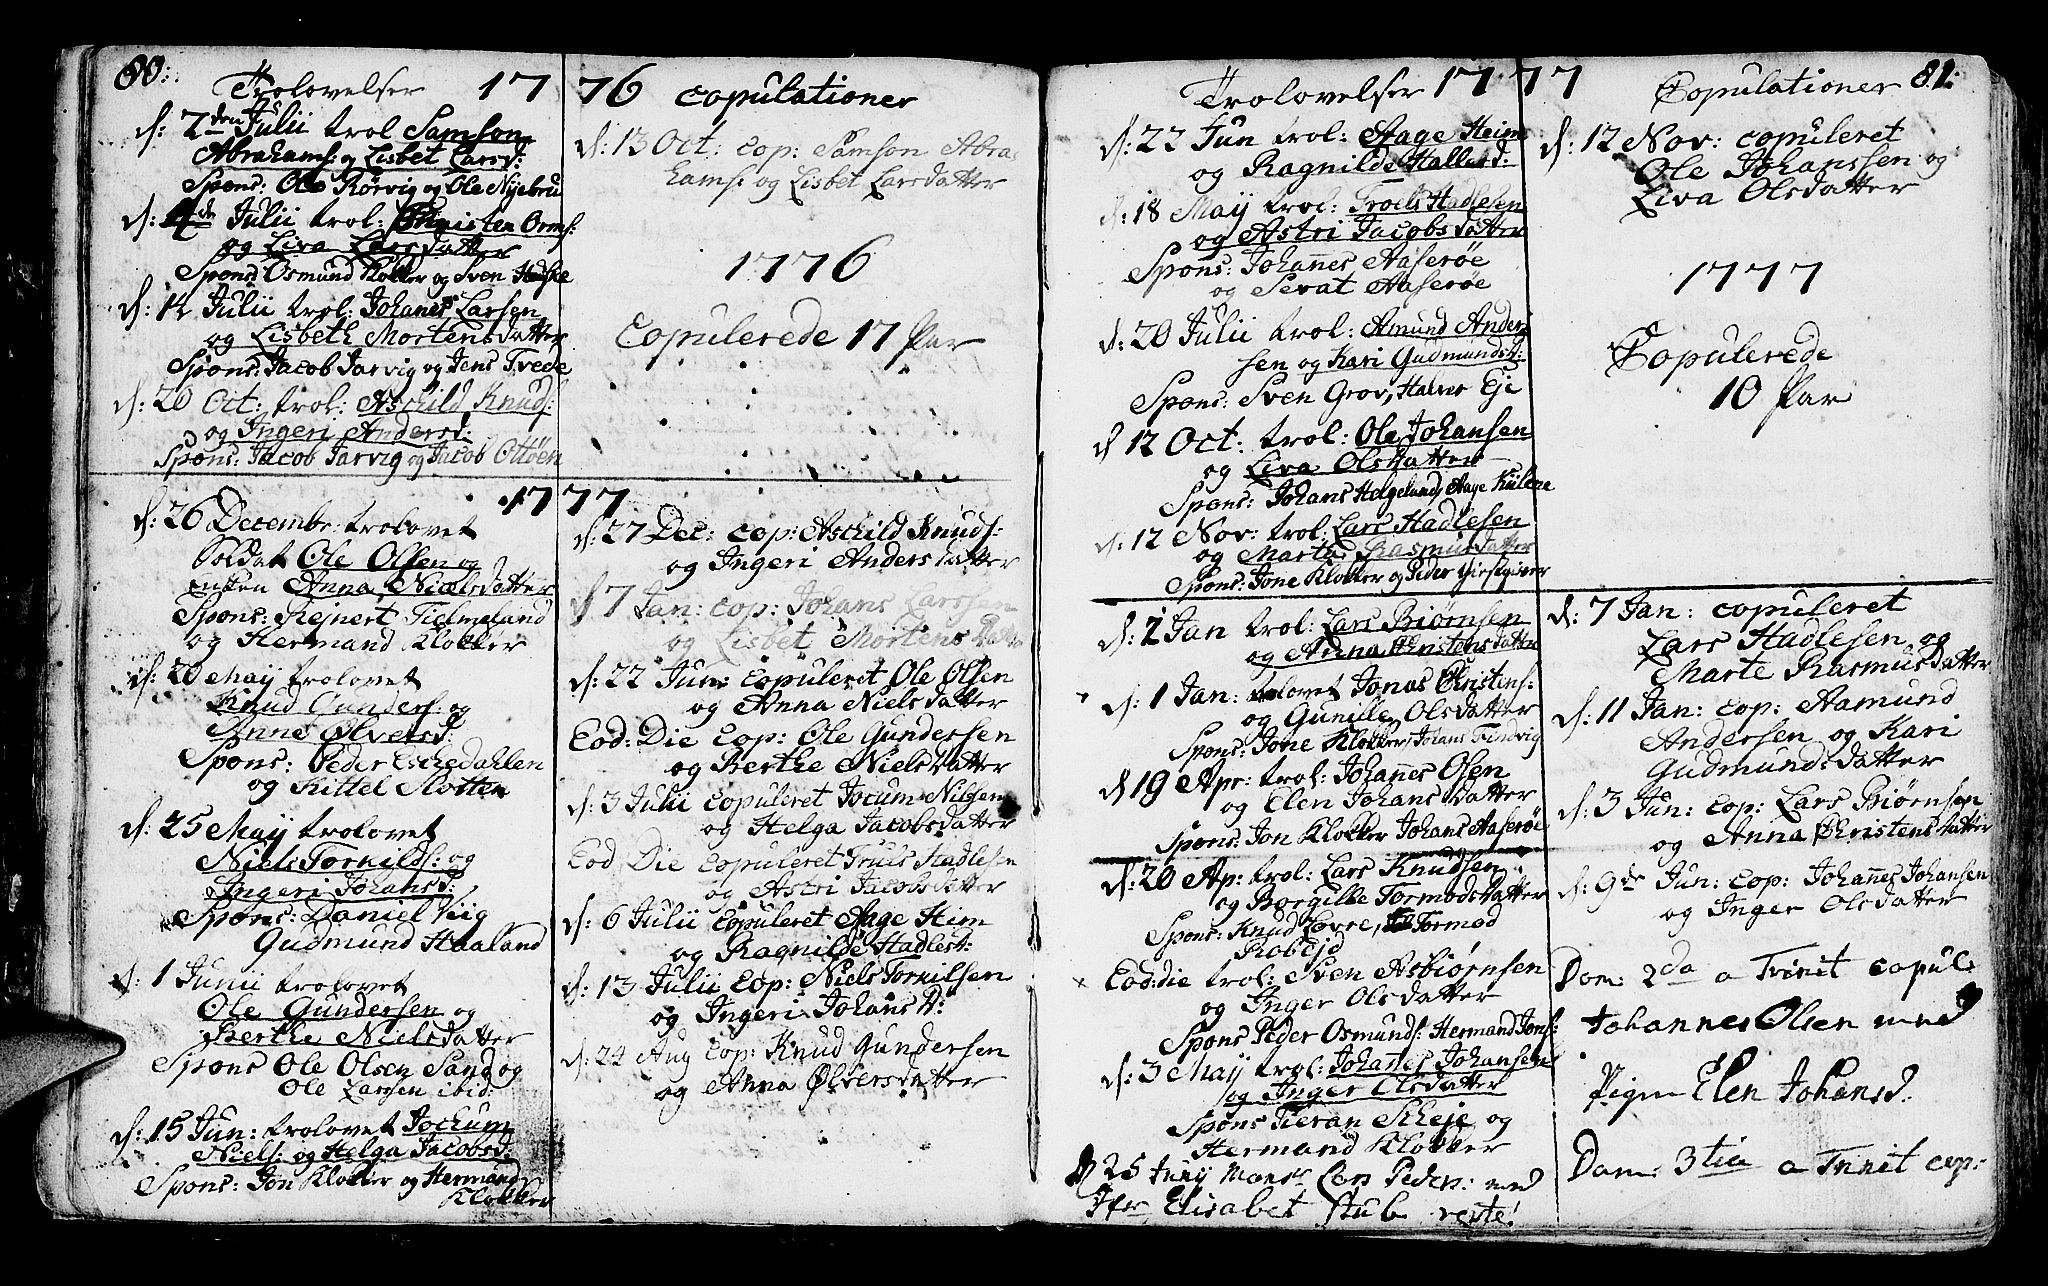 80:
Trolovelser 17
d: 2den Julii trol Samson
Abrahams: og Lisbet Larsd:
Spons: Ole Rørvig og Ole Nyebru
d: 4de Julii trol: Christen Orms:
og Liva Larsdatter
Spons Osmund Klokker og Sven
d: 14 Julii trol: Johanes Larsen
og Lisbeth Mortensdatter
Spons: Jacob Jarvig og Jens Tvede
d: 20 Oct: trol: Aschild Knuds:
og Ingeri Andersd:
Spons: Jacob Jarvig og Jacob Ottøen
1777
d: 26 Decembr: trolovet
Soldat Ole Olsen og
Enken Anna Nielsdatter
Spons: Rejnert Tielmeland
og Hermand Klokker
d: 20 Maij trolovet
Knud Gunders: og
Anne Ølversd:
Spons: Peder Eschedahlen
og Kittel Slotten
d: 25 Maij trolovet
Niels Torkilds: og
Ingeri Johansd:
Spons: Daniel Viig
Gudmund Haaland
d: 1 Junii trolovet
Ole Gundersen og
Berthe Nielsdatter
Spons Ole Olsen Sand og
Ole Larsen ibid:
d: 15 Jun: trolovet Jochum
Niels: og Helga Jacobsd:
Spons: Jon Klokker og Hermand
Klokker
76 Copulationer
d: 13 Oct: cop: Samson Abra
hams: og Lisbet Larsdatter
1776
Copulerede 17 Par
d: 27 Dec: cop: Aschild Knuds:
og Ingeri Andersdatter
d: 7 Jan: cop: Johans Larssen
og Lisbet Mortensdatter
d: 22 Jun: copuleret Ole Olsen
og Anna Nielsdatter
Eod: Die cop: Ole Gundersen
og Berthe Nielsdatter
d: 3 Julii copuleret Jocum Nilsen
og Helga Jacobsdatter
Eod Die copuleret Truls Hadlesen
og Astri Jacobsdatter
d: 6 Julii copuleret Aage Heim
og Ragnilde Hadlesd:
d: 13 Julii cop: Niels Torkilsen
og Ingeri Johansd:
d: 24 Aug cop: Knud Gundersen
og Anna Ølversdatter
Trolovelser 17
d: 22 Jun trol: Aage Heim
og Ragnilde Hallesd:
d: 18 Maij trol: Troels Hadlesen
og Astri Jacobsdatter
Spons: Johanes Aaserøe
og Sevat Aaserøe
d: 20 Julii trol: Amund Anders
sen og Kari Gudmundsd:
Spons: Sven Grov, Halver Eje
d 12 Oct: trol: Ole Johansen
og Liva Olsdatter
Spons: Johans Helgelund, Aage Kulene
d: 12 Nov: trol: Lars Hadlesen
og Marte Rasmusdatter
Spons: Jone Klokker og Peder
d: 2 Jan trol: Lars Biørnsen
og Anna Christensdatter
d: 1 Jan: trolovet Jonas Christens:
og Gunille Olsdatter
Spons: Jone Klokker, Johans Tindvig
d 19 Apr: trol: Johannes Olsen
og Elen Johansdatter
Spons: Jon Klokker Johans Aaserøe
d: 20 Ap: trol: Lars Knudsen
og Borgille Tormodsdatter
Spons: Knud Lovre, Tormod
Eod: die trol: Sven Asbiørnsen
og Inger Olsdatter
Spons Peder Osmunds: Hermand Jons:
d: 3 Maij trol: Johanes Johansen
og Inger Olsdatter
Spons Tieran Scheje og
Hermand Klokker
d 25 Junij Mons: Lars Peders: med
Jfr Elisabet Stub
77 Copulationer 81:
d: 12 Nov: copuleret
Ole Johanssen og
Liva Olsdatter
1777
Copulerede
10 Par
d: 7 Jan: copuleret
Lars Hadlesen og
Marte Rasmusdatter
d: 11 Jan: cop: Aamund
Andersen og Kari
Gudmundsdatter
d: 3 Jun: cop: Lars Biørnsen
og Anna Christensdatter
d: 9de Jun: cop: Johannes Johansen
og Inger Olsdatter
Dom: 2da a Trinit copul:
Johannes Olsen med
Pigen Elen Johansd.
Dom: 3tia a Trinit cop: